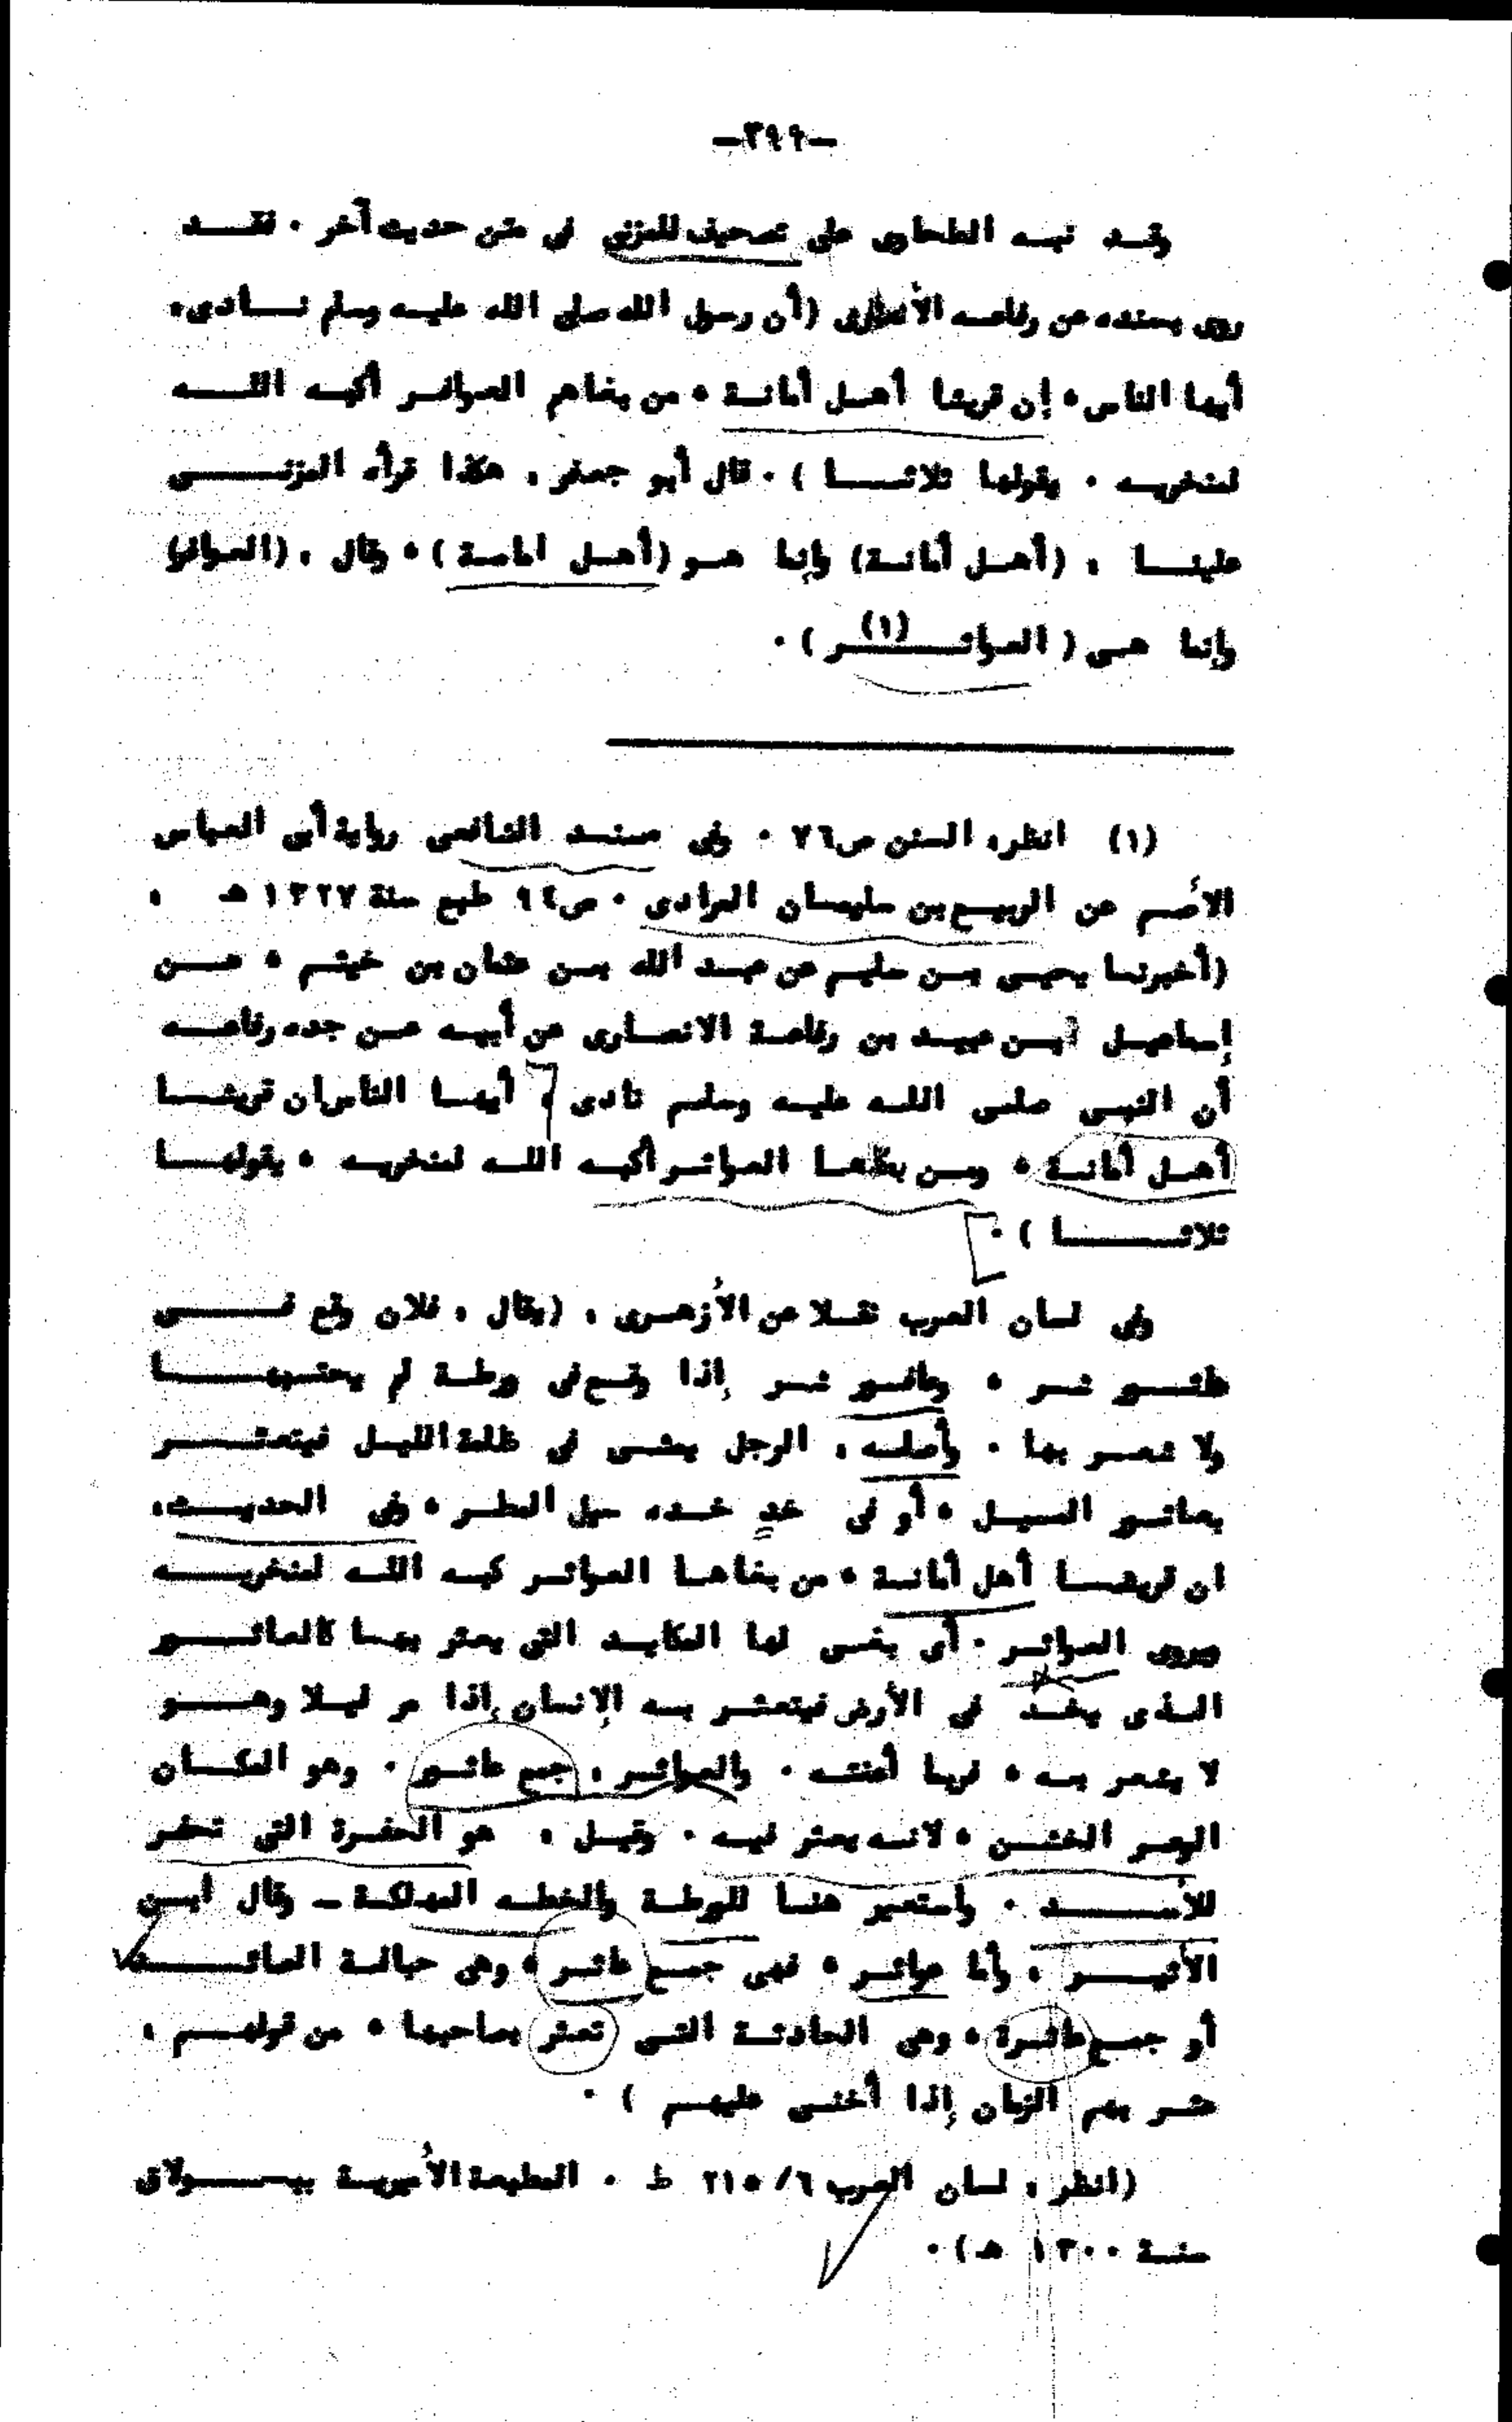 -٣٩٩-
وقد نبه الطحاوى على تصحيف للمزنى فى متن حديث آخر . فقد
روى بسنده عن رفاعه الأنصارى (أن رسول الله صلى الله عليه وسلم نادى،
أيها الناس، إن قريشا أهل أمانة ، من بغاهم العوائر أكبه الله
لمنخريه . يقولها ثلاثا ) . قال أبو جعفر ، هكذا قرأه المزنى
علينا ، (أهل أمانة) وإنما هو (أهل امامة) ، وقال ، (العوائر)
وإنما هى ( العواثر (١) ) .
(١) انظر، السنن ص٧٦ . وفى مسند الشافعى رواية أبى العباس
الأصم عن الربيع بن سليمان المرادى . ص٩٤ طبع سنة ١٣٢٧ هـ ،
(أخبرنا يحيى بن سليم عن عبد الله بن عثمان بن خيثم ، عن
إسماعيل ابن عبيد بن رفاعة الانصارى عن أبيه عن جده رفاعه
أن النبى صلى الله عليه وسلم نادى ، أيها الناس ان قريشا
أهل أمانة ، ومن بغاها العواثر أكبه الله لمنخريه ، يقولها
ثلاثا ) .
وفى لسان العرب نقلا عن الأزهرى ، (يقال ، فلان وقع فى
عاثور شر ، وعافور شر إذا وقع فى ورطة لم يحتسبها
ولا شعر بها . وأصله ، الرجل يمشى فى ظلمة الليل فيتعثر
بعاثور المسيل ، أو فى خدٍ خده سيل المطر ، وفى الحديث،
ان قريشا أهل أمانة ، من بغاها العواثير كبه الله لمنخريه
ويروى العواثر . أى بغى لها المكايد التى يعثر بها كالعاثور
الذى يخد فى الأرض فيتعثر به الإنسان إذا مر ليلا وهو
لا يشعر به ، فربما أعنته . والعواثير ، جمع عاثور . وهو المكان
الوعر الخشن ، لانه يعثر فيه . وقيل ، هو الحفرة التى تحفر
للأسد . واستعير هنا للورطة والخطه المهلكة ـ وقال ابن
الأثير ، وأما عواثر ، فهى جمع عاثر ، وهى حبالة الصائد
أو جمع عاثرة ، وهى الحادثة التى تعثر بصاحبها ، من قولهم ،
عثر بهم الزمان إذا أخنى عليهم ) .
(انظر ، لسان العرب ٢١٥/٦ ط . المطبعة الأميرية ببولاق
سنة ١٣٠٠ هـ) .